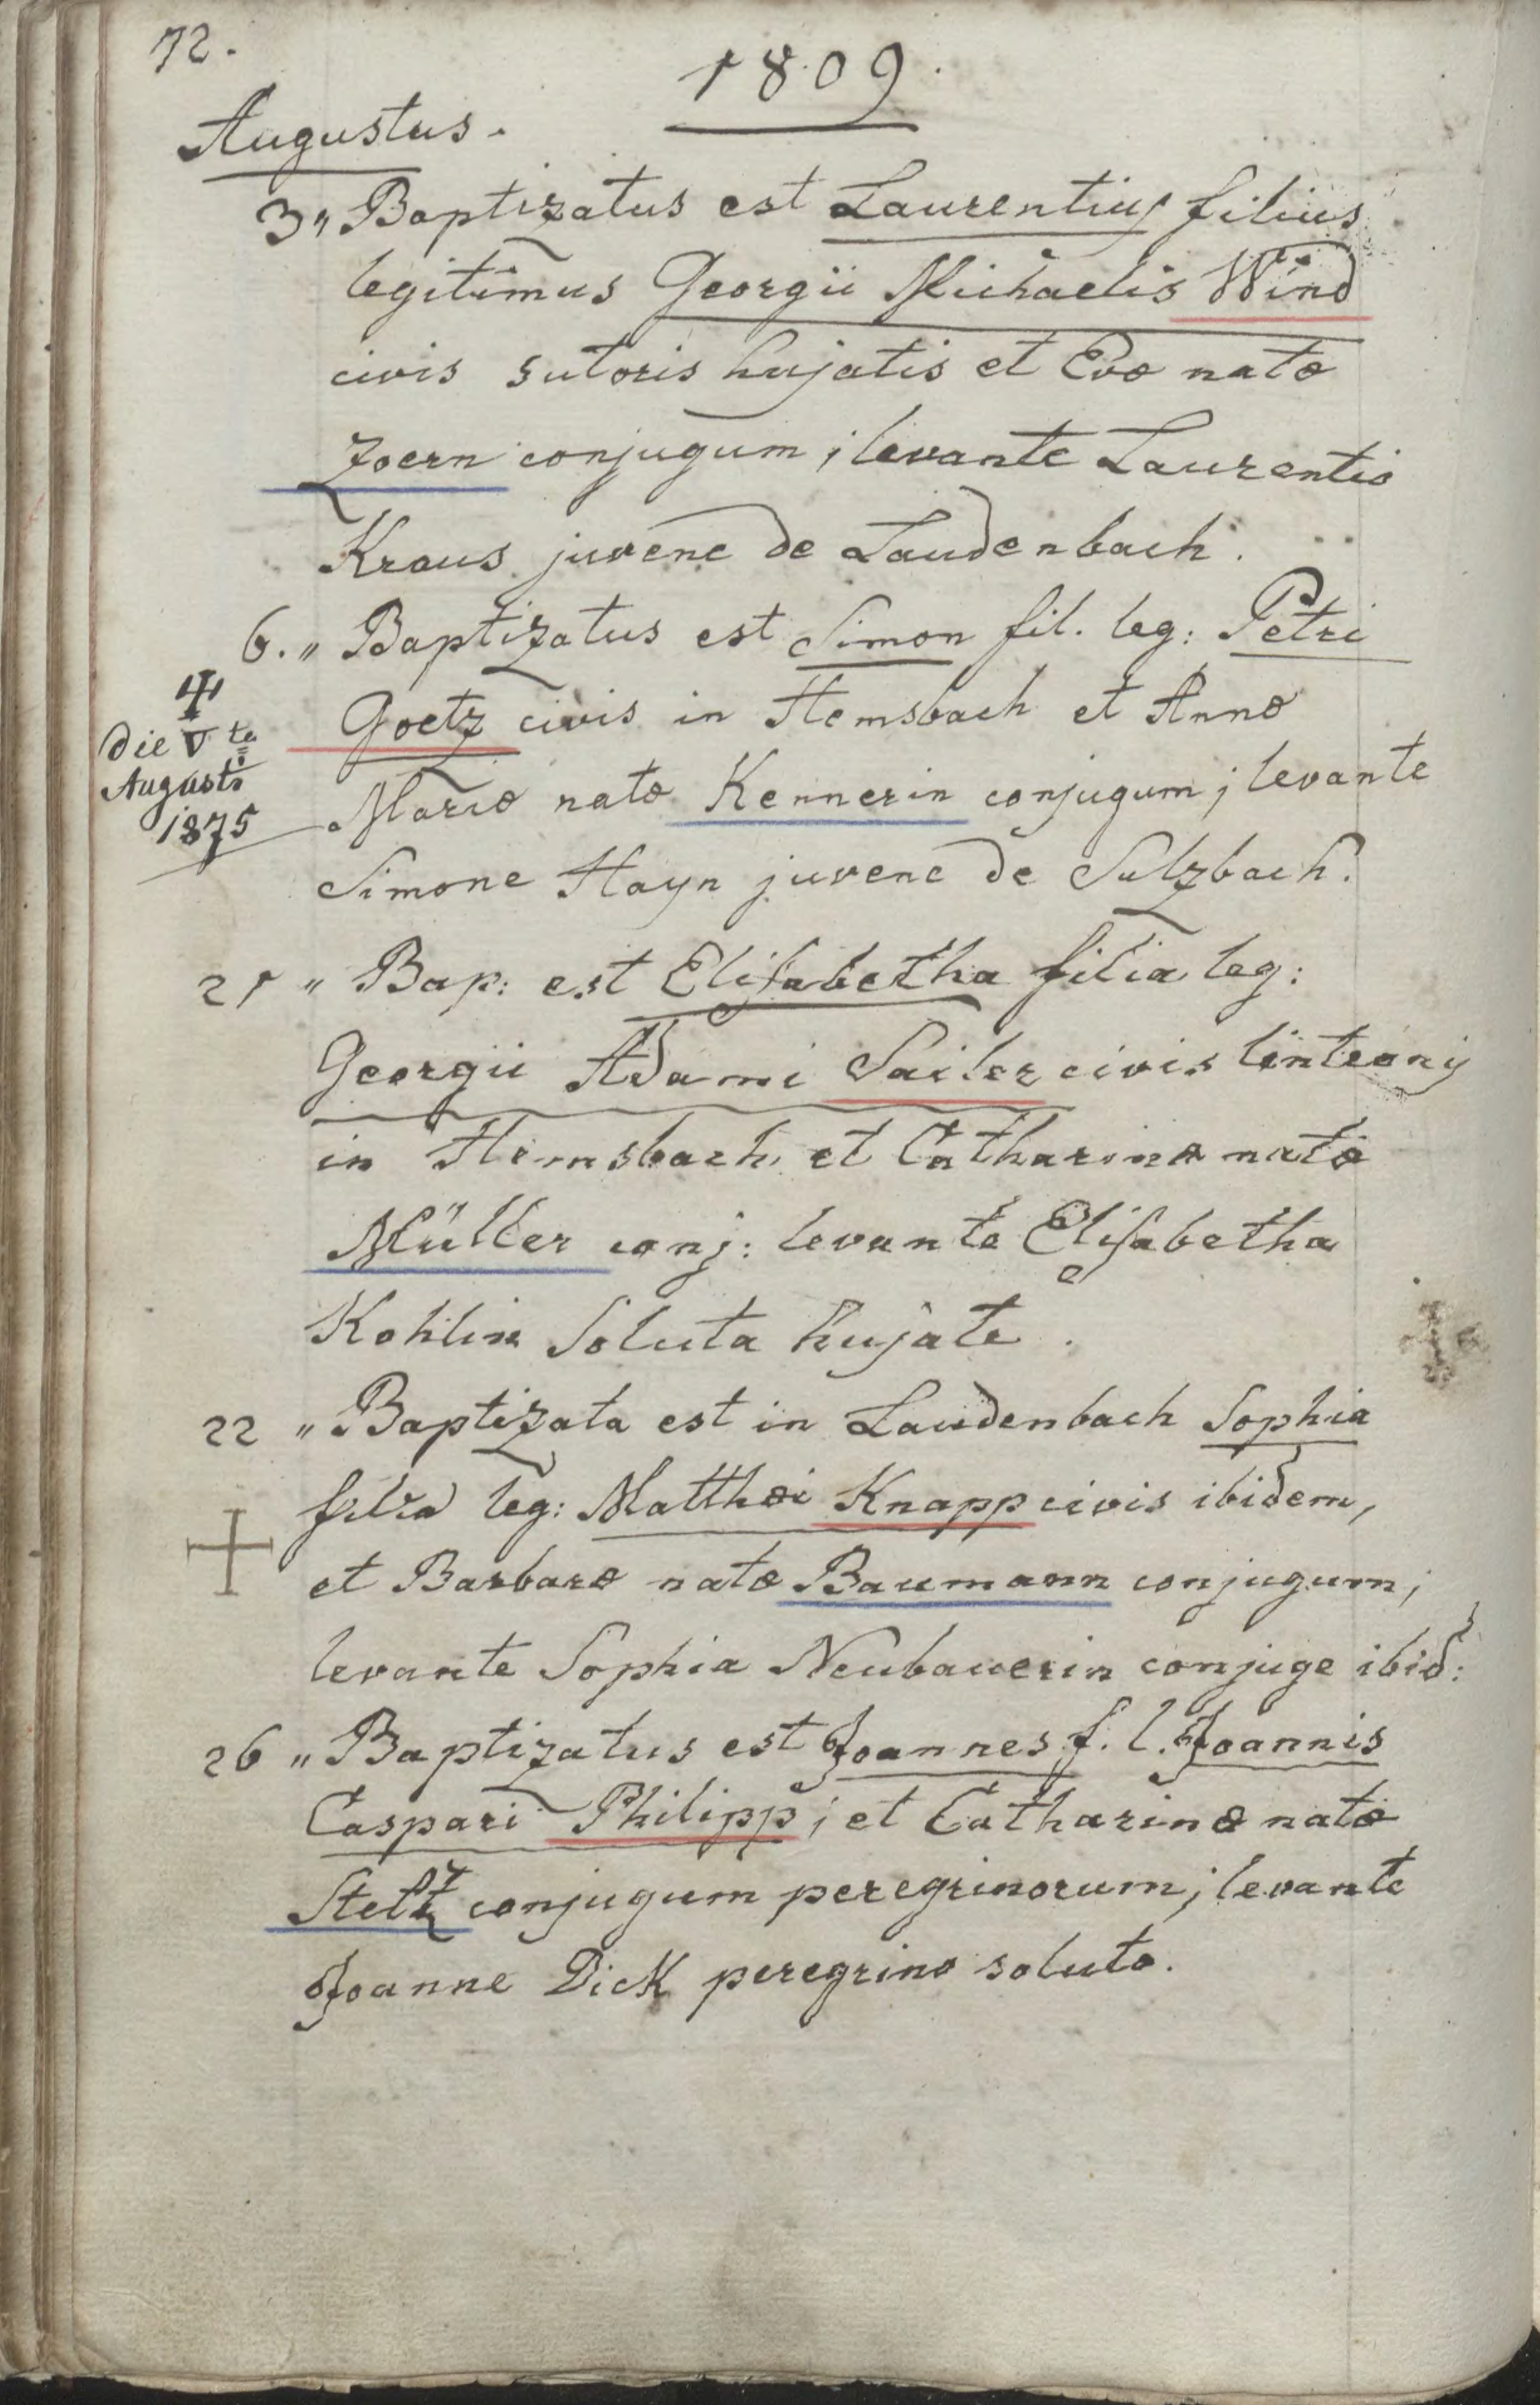 72.
1809.
Augustus.
3" Baptizatus est Laurentius filius
legitimus Georgii Michaelis Wind
civis sutoris hujatis et Evæ natæ
Zoern conjugum; levante Laurentio
Kraus juvene de Laudenbach.
6." Baptizatus est Simon fil. leg: Petri
Goetz civis in Hemsbach et Annæ
Mariæ natæ Kennerin conjugum; levante
Simone Hayn juvene de Sulzbach.
die Vta
Augusti
1875
21 " Bap: est Elisabetha filia leg:
Georgii Adami Sailer civis linteonis
in Hemsbach, et Catharinæ natæ
Müller conj: levante Elisabetha
Kohlin Soluta hujate.
22 " Baptizata est in Laudenbach Sophia
filia leg: Matthæi Knapp civis ibidem,
et Barbaræ natæ Baumann conjugum;
levante Sophia Neubauerin conjuge ibid:
26 " Baptizatus est Joannes f. l. Joannis
Caspari Philipp; et Catharinæ natæ
Steltz conjugum peregrinorum; levante
Joanne Dick peregrino soluto.